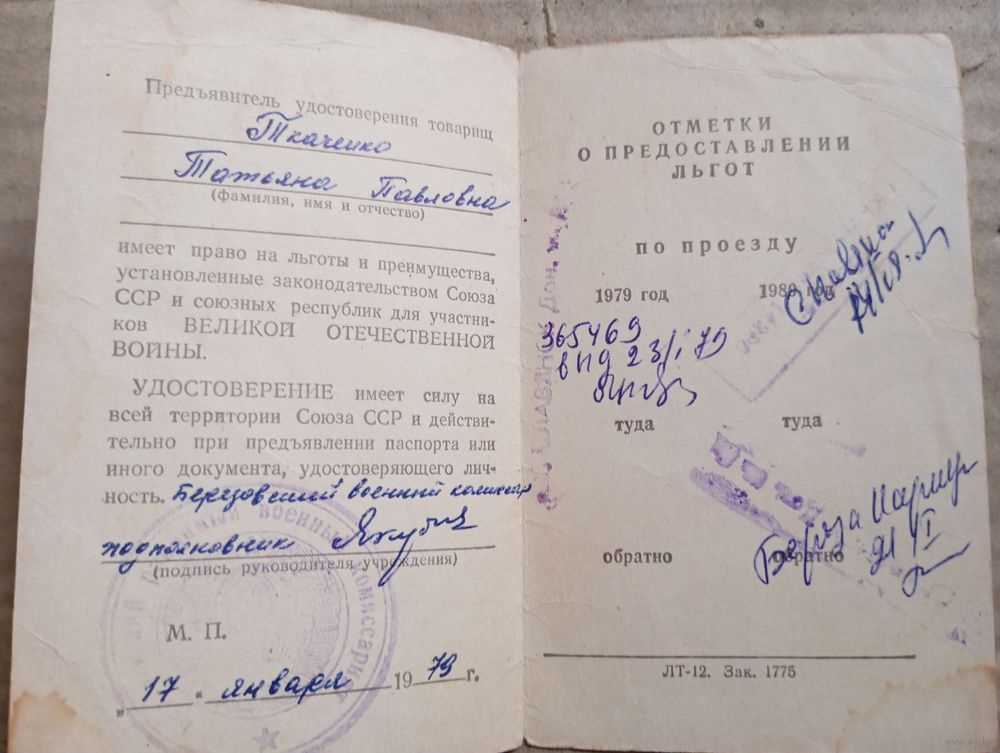 Предъявитель удостоверения товарищ
Ткаченко
Татьяна Павловна
(фамилия, имя и отчество)
имеет право на льготы и преимущества,
установленные законодательством Союза
ССР и союзных республик для участни-
ков ВЕЛИКОЙ ОТЕЧЕСТВЕННОЙ
ВОЙНЫ.
УДОСТОВЕРЕНИЕ имеет силу на
всей территории Союза ССР и действи-
тельно при предъявлении паспорта или
иного документа, удостоверяющего лич-
ность. Березовский военный комиссар
подполковник
(подпись руководителя учреждения)
М. П.
„17 " января 1979 г.
ОТМЕТКИ
О ПРЕДОСТАВЛЕНИИ
ЛЬГОТ
по проезду
1979 год 1980 год
365469
впд 23/I 79
туда туда
Береза
обратно обратно
ЛТ-12. Зак. 1775